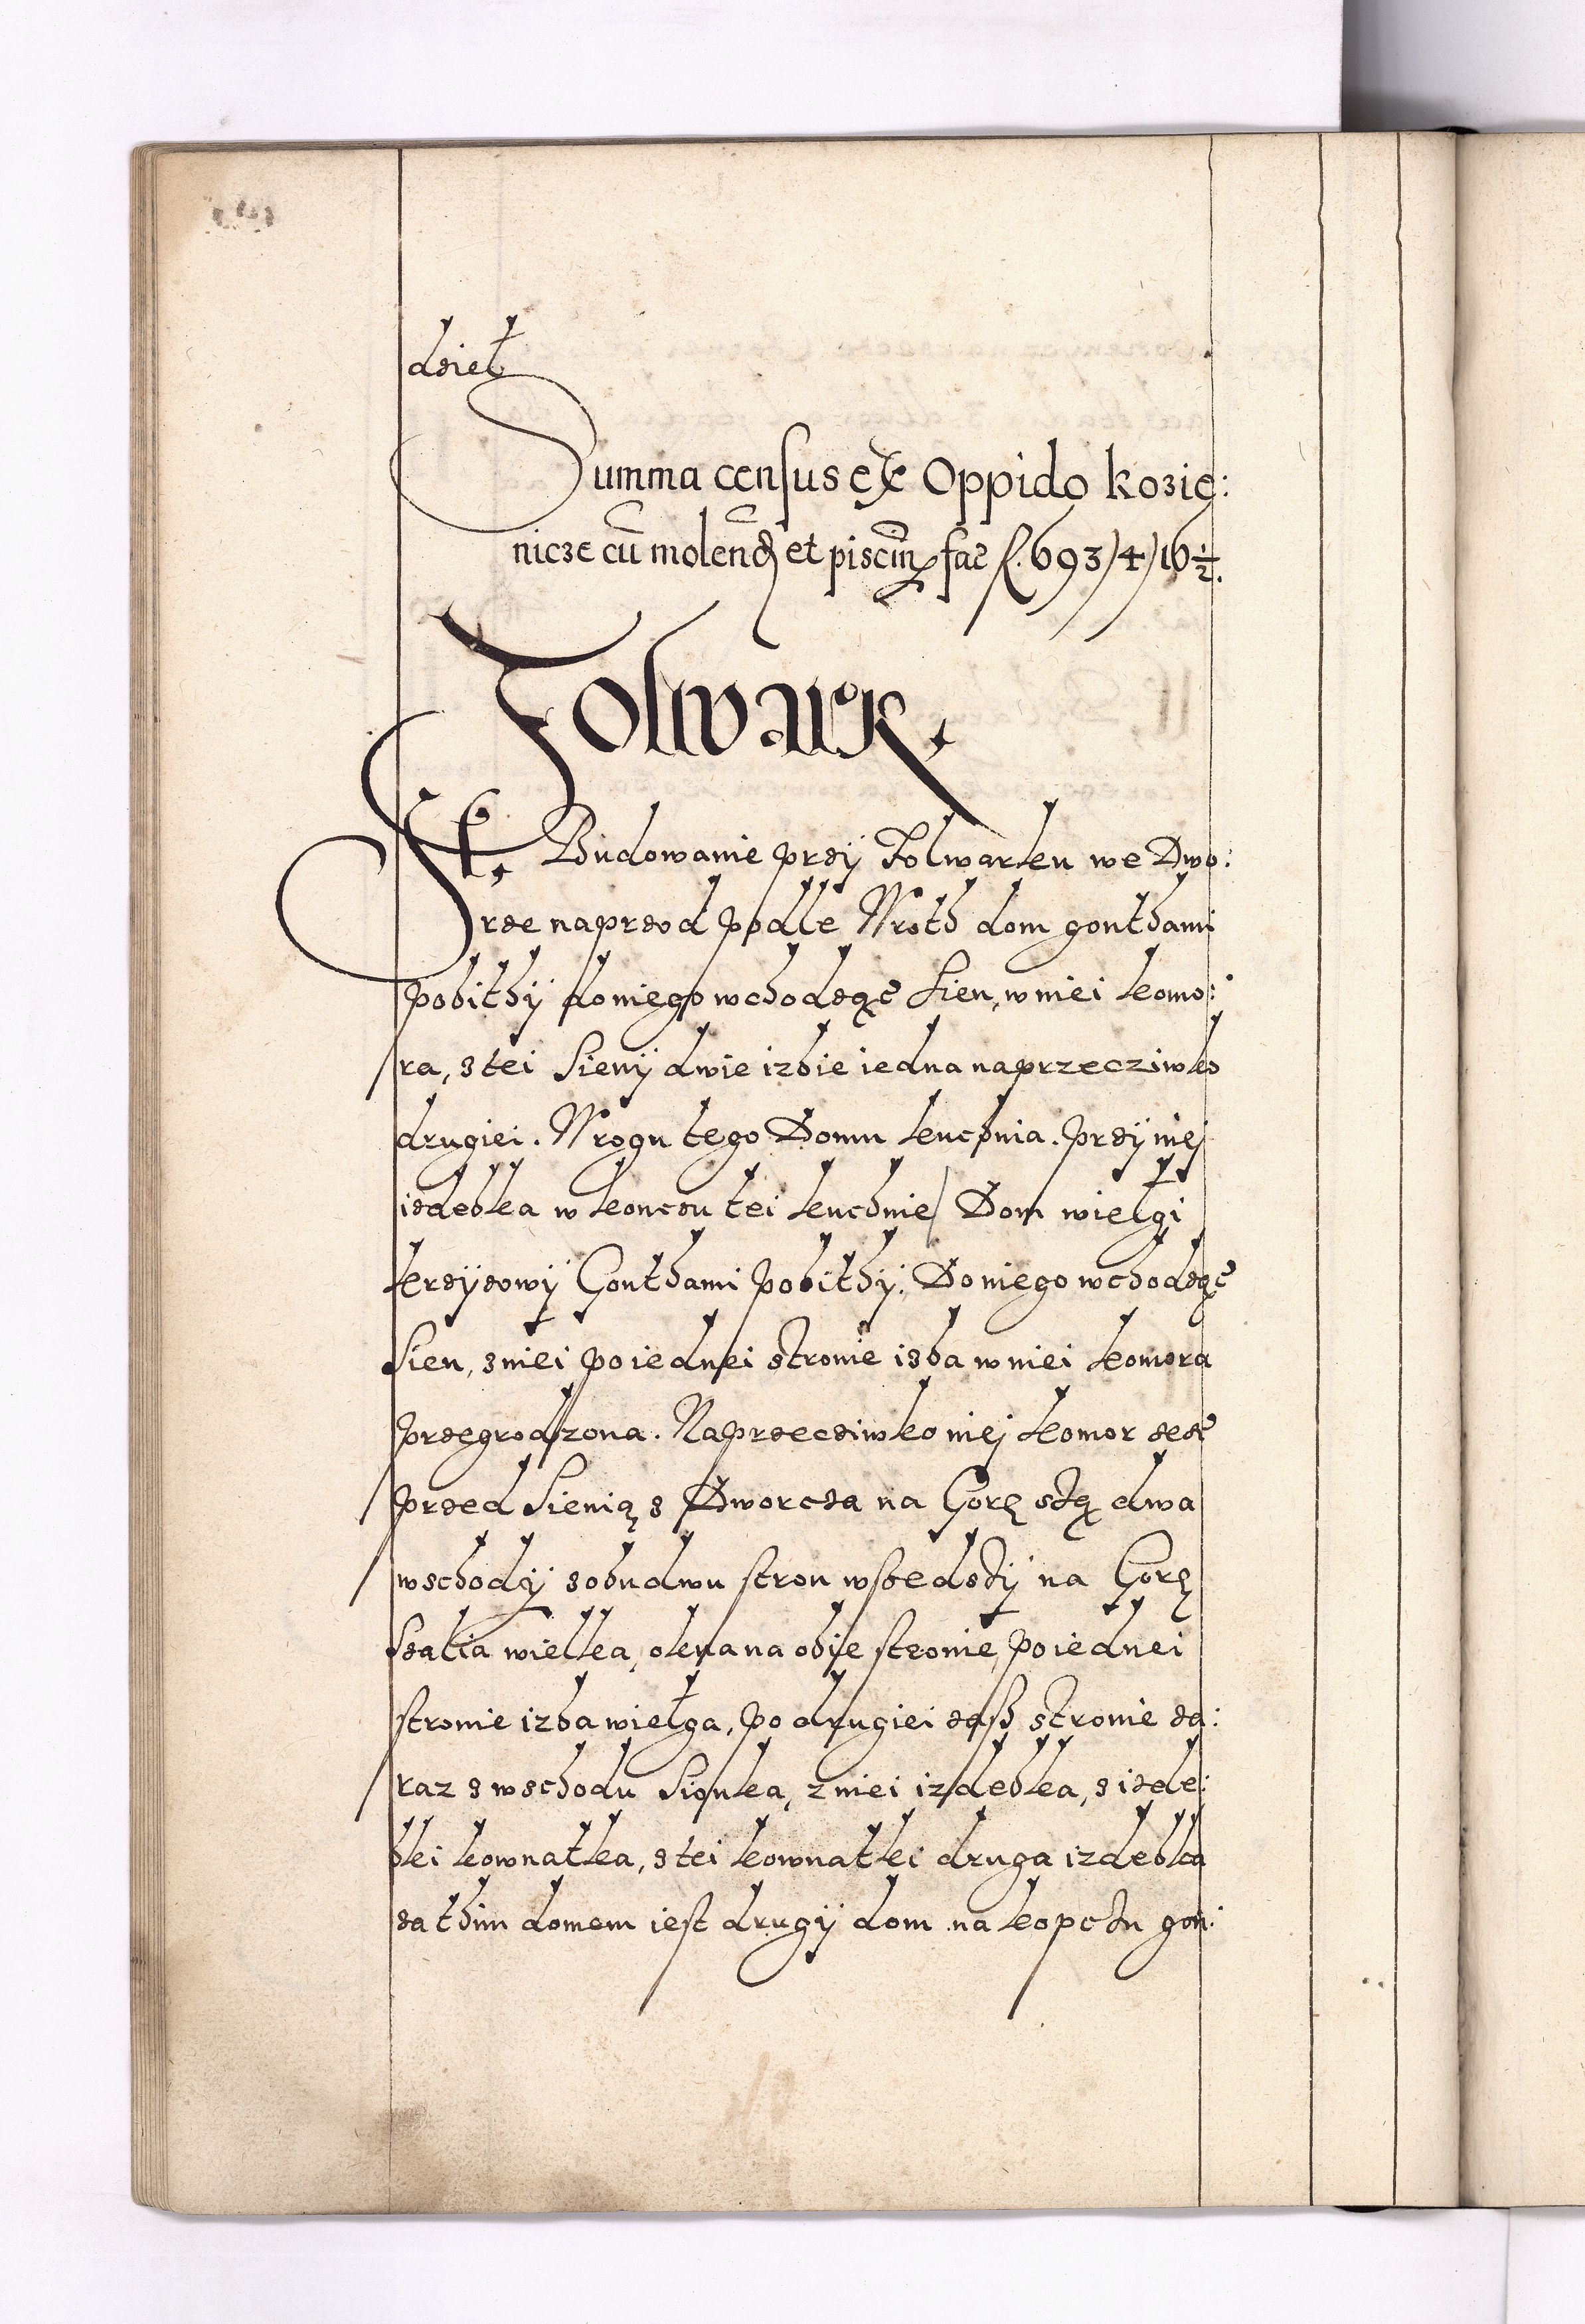 dzieł
Summa census ex Oppido kozie:
nicze cu molend et piscin fac f. 693/4/16½.
Folwark.
Jt. Budowanie przÿ Folwarku we Dwo:
rze naprzod podle Wroth dom gonthami
pobithÿ do niego wchodząc Sien, w niei komo:
ra, z tei Sienÿ dwie izbie iedna naprzecziwko
drugiei. W rogu tego Domu kuchnia. przÿ niej
izdebka w konczu tei kuchnie/ Dom wielgi
krzÿzowÿ Gonthami pobithÿ. Do niego wchodząc
Sien, z niei po iednei stronie izba w niei komora
przegrodzona. Naprzecziwko niej komor
przed Sienią z Dworcza na Gorę  dwa
wschodÿ z obudwu stron  na Gorę
Szalia wielka, okna na obie stronie, po iednei
stronie izba wielga, po drugiei zaß stronie za:
raz z wschodu Sionka, z niei izdebka, z izde:
bki kownatka, z tei kownatki druga izdebka
za thim domem iest drugÿ dom na kopctu gon: